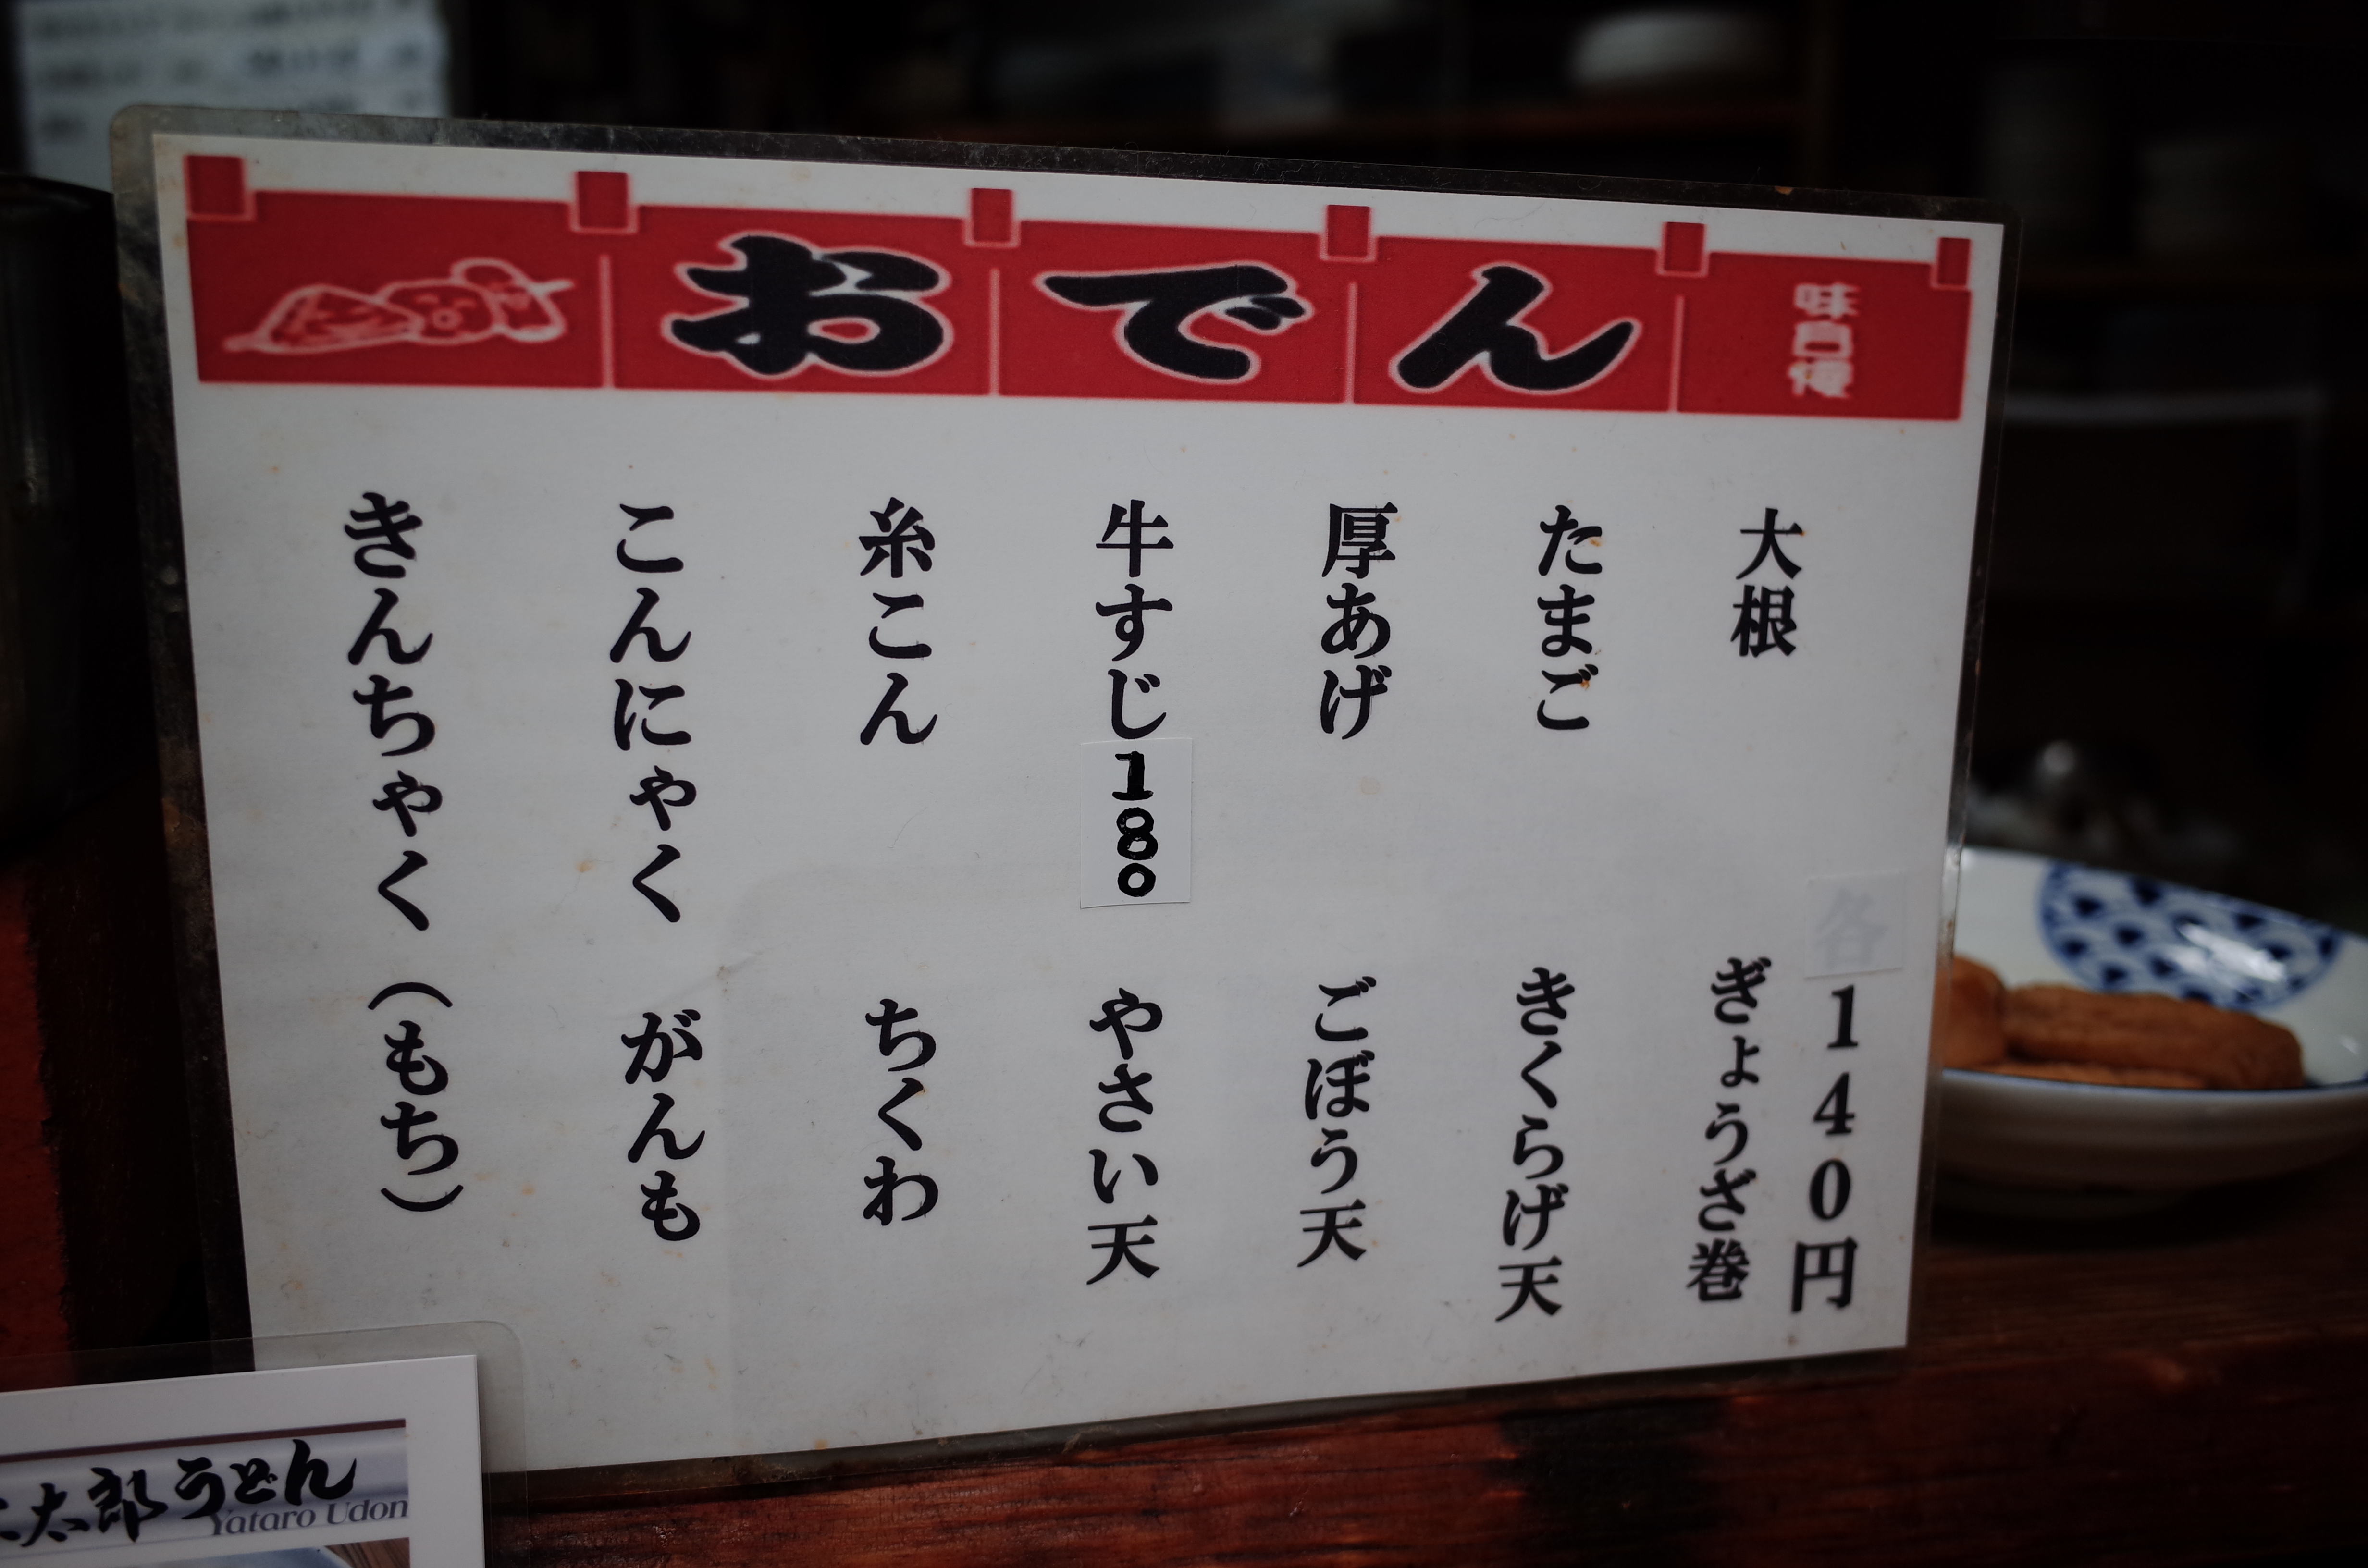 おでん
味自慢
各140円
大根
ぎょうざ巻
たまご
きくらげ天
厚あげ
ごぼう天
牛すじ180
やさい天
糸こん
ちくわ
こんにゃく
がんも
きんちゃく(もち)
太郎うどん
Yataro Udon